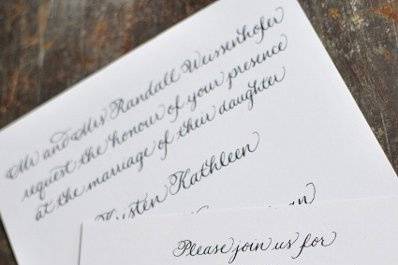 Mr and Mrs Randall Weissenhofer
request the honour of your presence
at the marriage of their daughter
Kirsten Kathleen
Please join us for